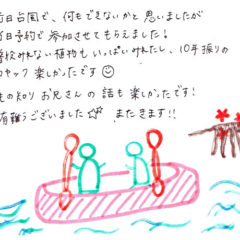 毎日台風で、何もできないかと思いましたが
当日予約で参加させてもらえました！
普段みれない植物もいっぱいみれたし、10年振りの
カヤック楽しかったです☺
もの知りお兄さんの話も楽しかったです！
有難うございました☆ またきます!!